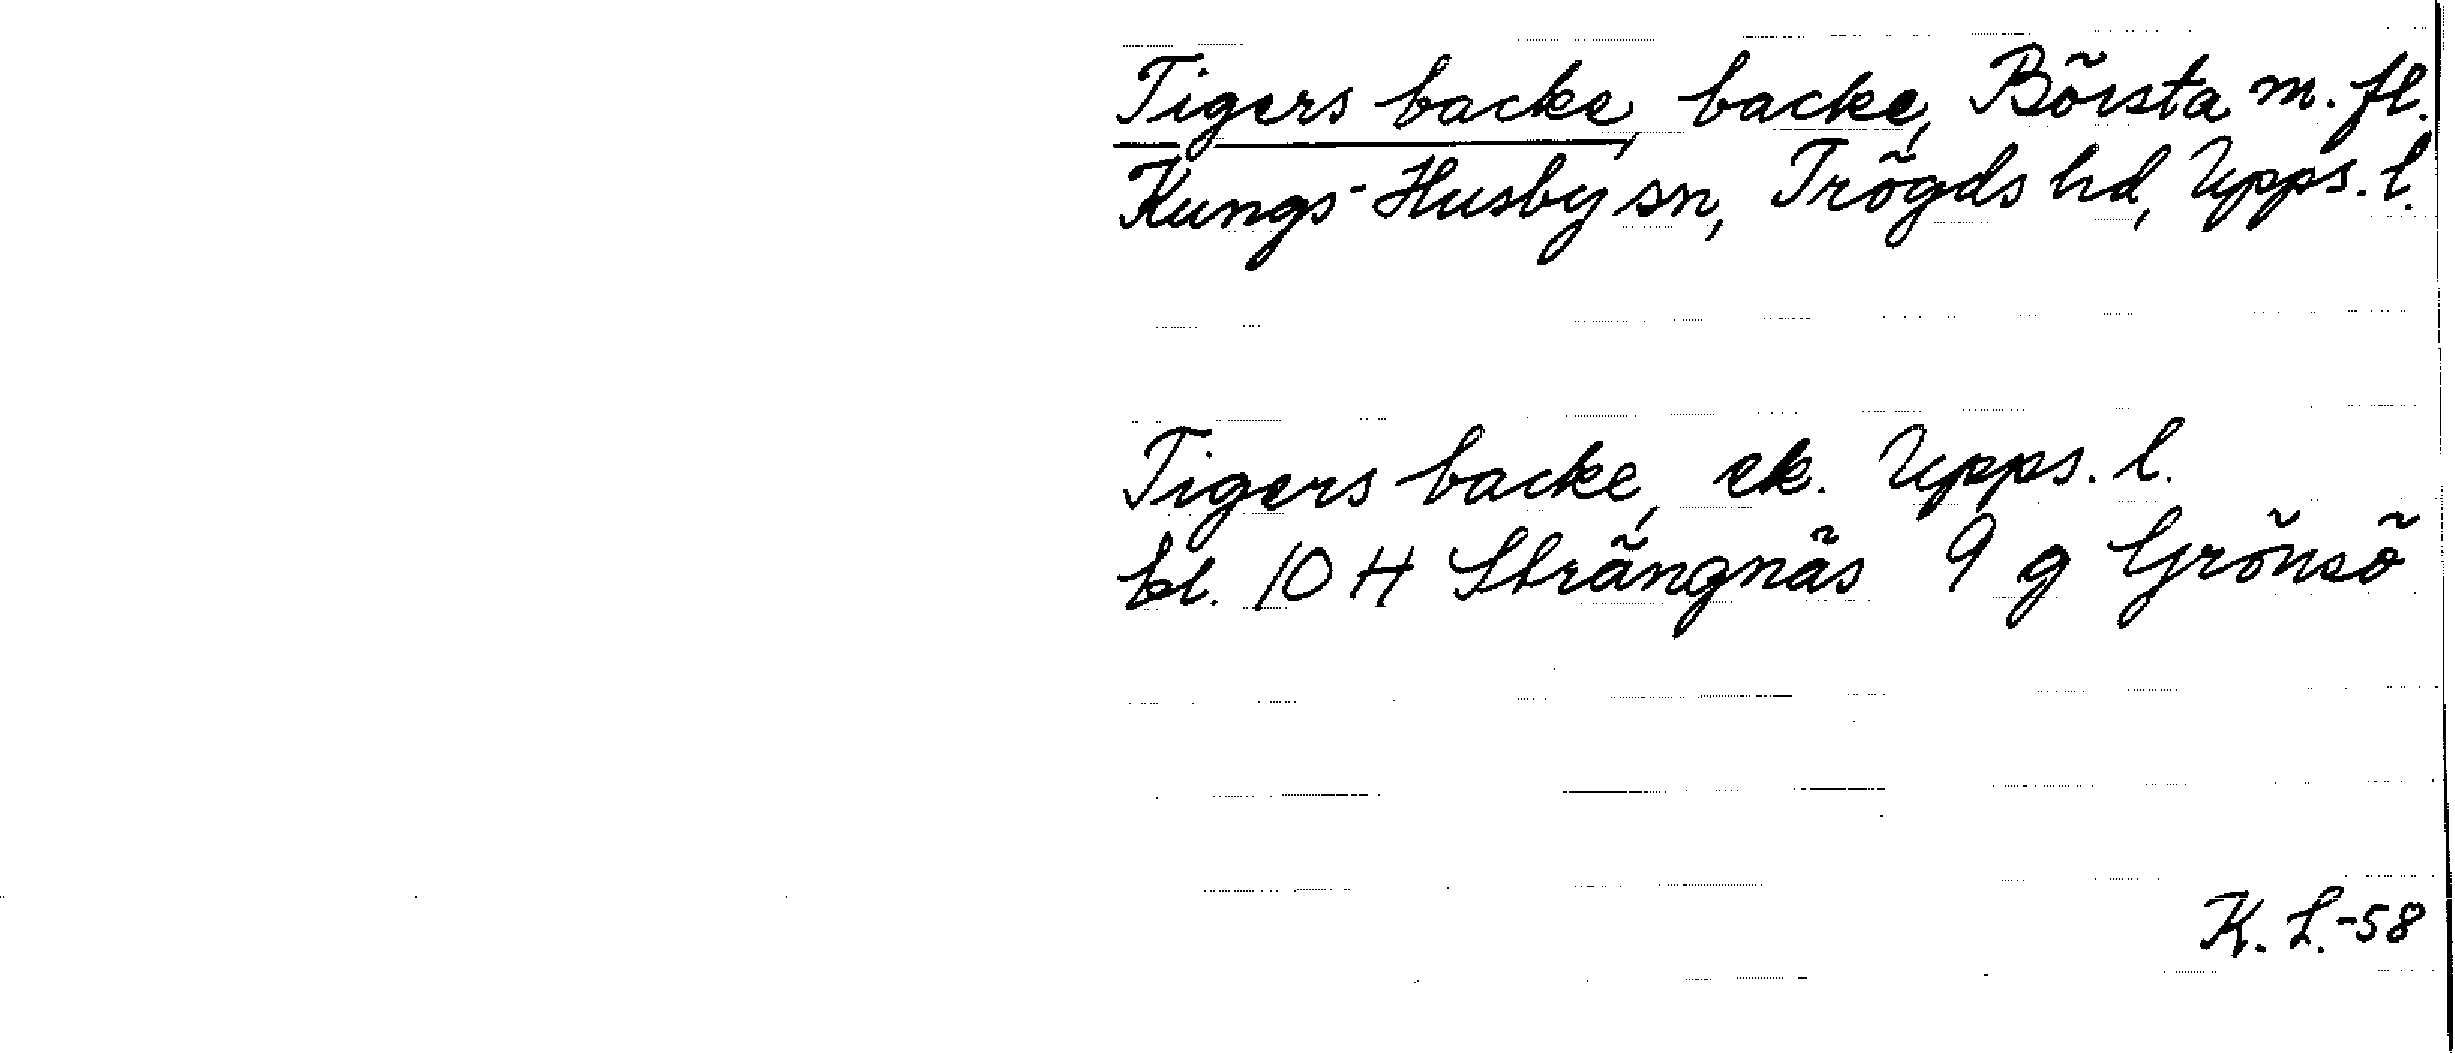 Tigers backe, backe, Börsta m. fl.
Kungs-Husby sn, Trögds hd, Upps. l.
Tigers backe, ek. Upps. l.
bl. 10 H Strängnäs 9 g Grönsö
K. L.-58